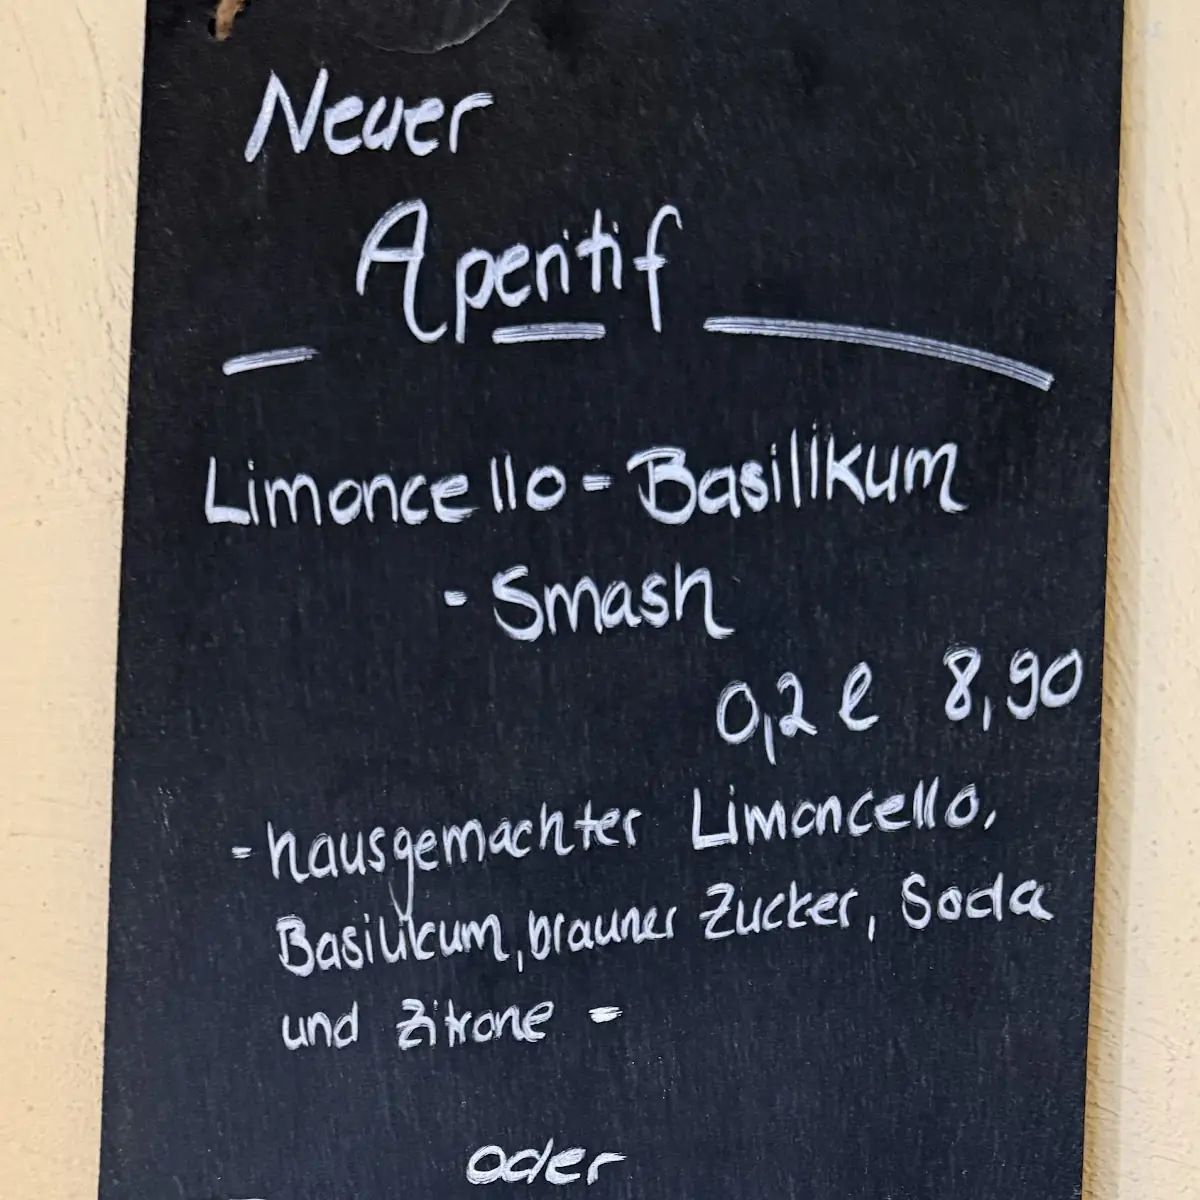 Neuer
Aperitif
Limoncello-Basilikum
-Smash
0,2 l 8,90
-hausgemachter Limoncello,
Basilikum, brauner Zucker, Soda
und Zitrone -
oder